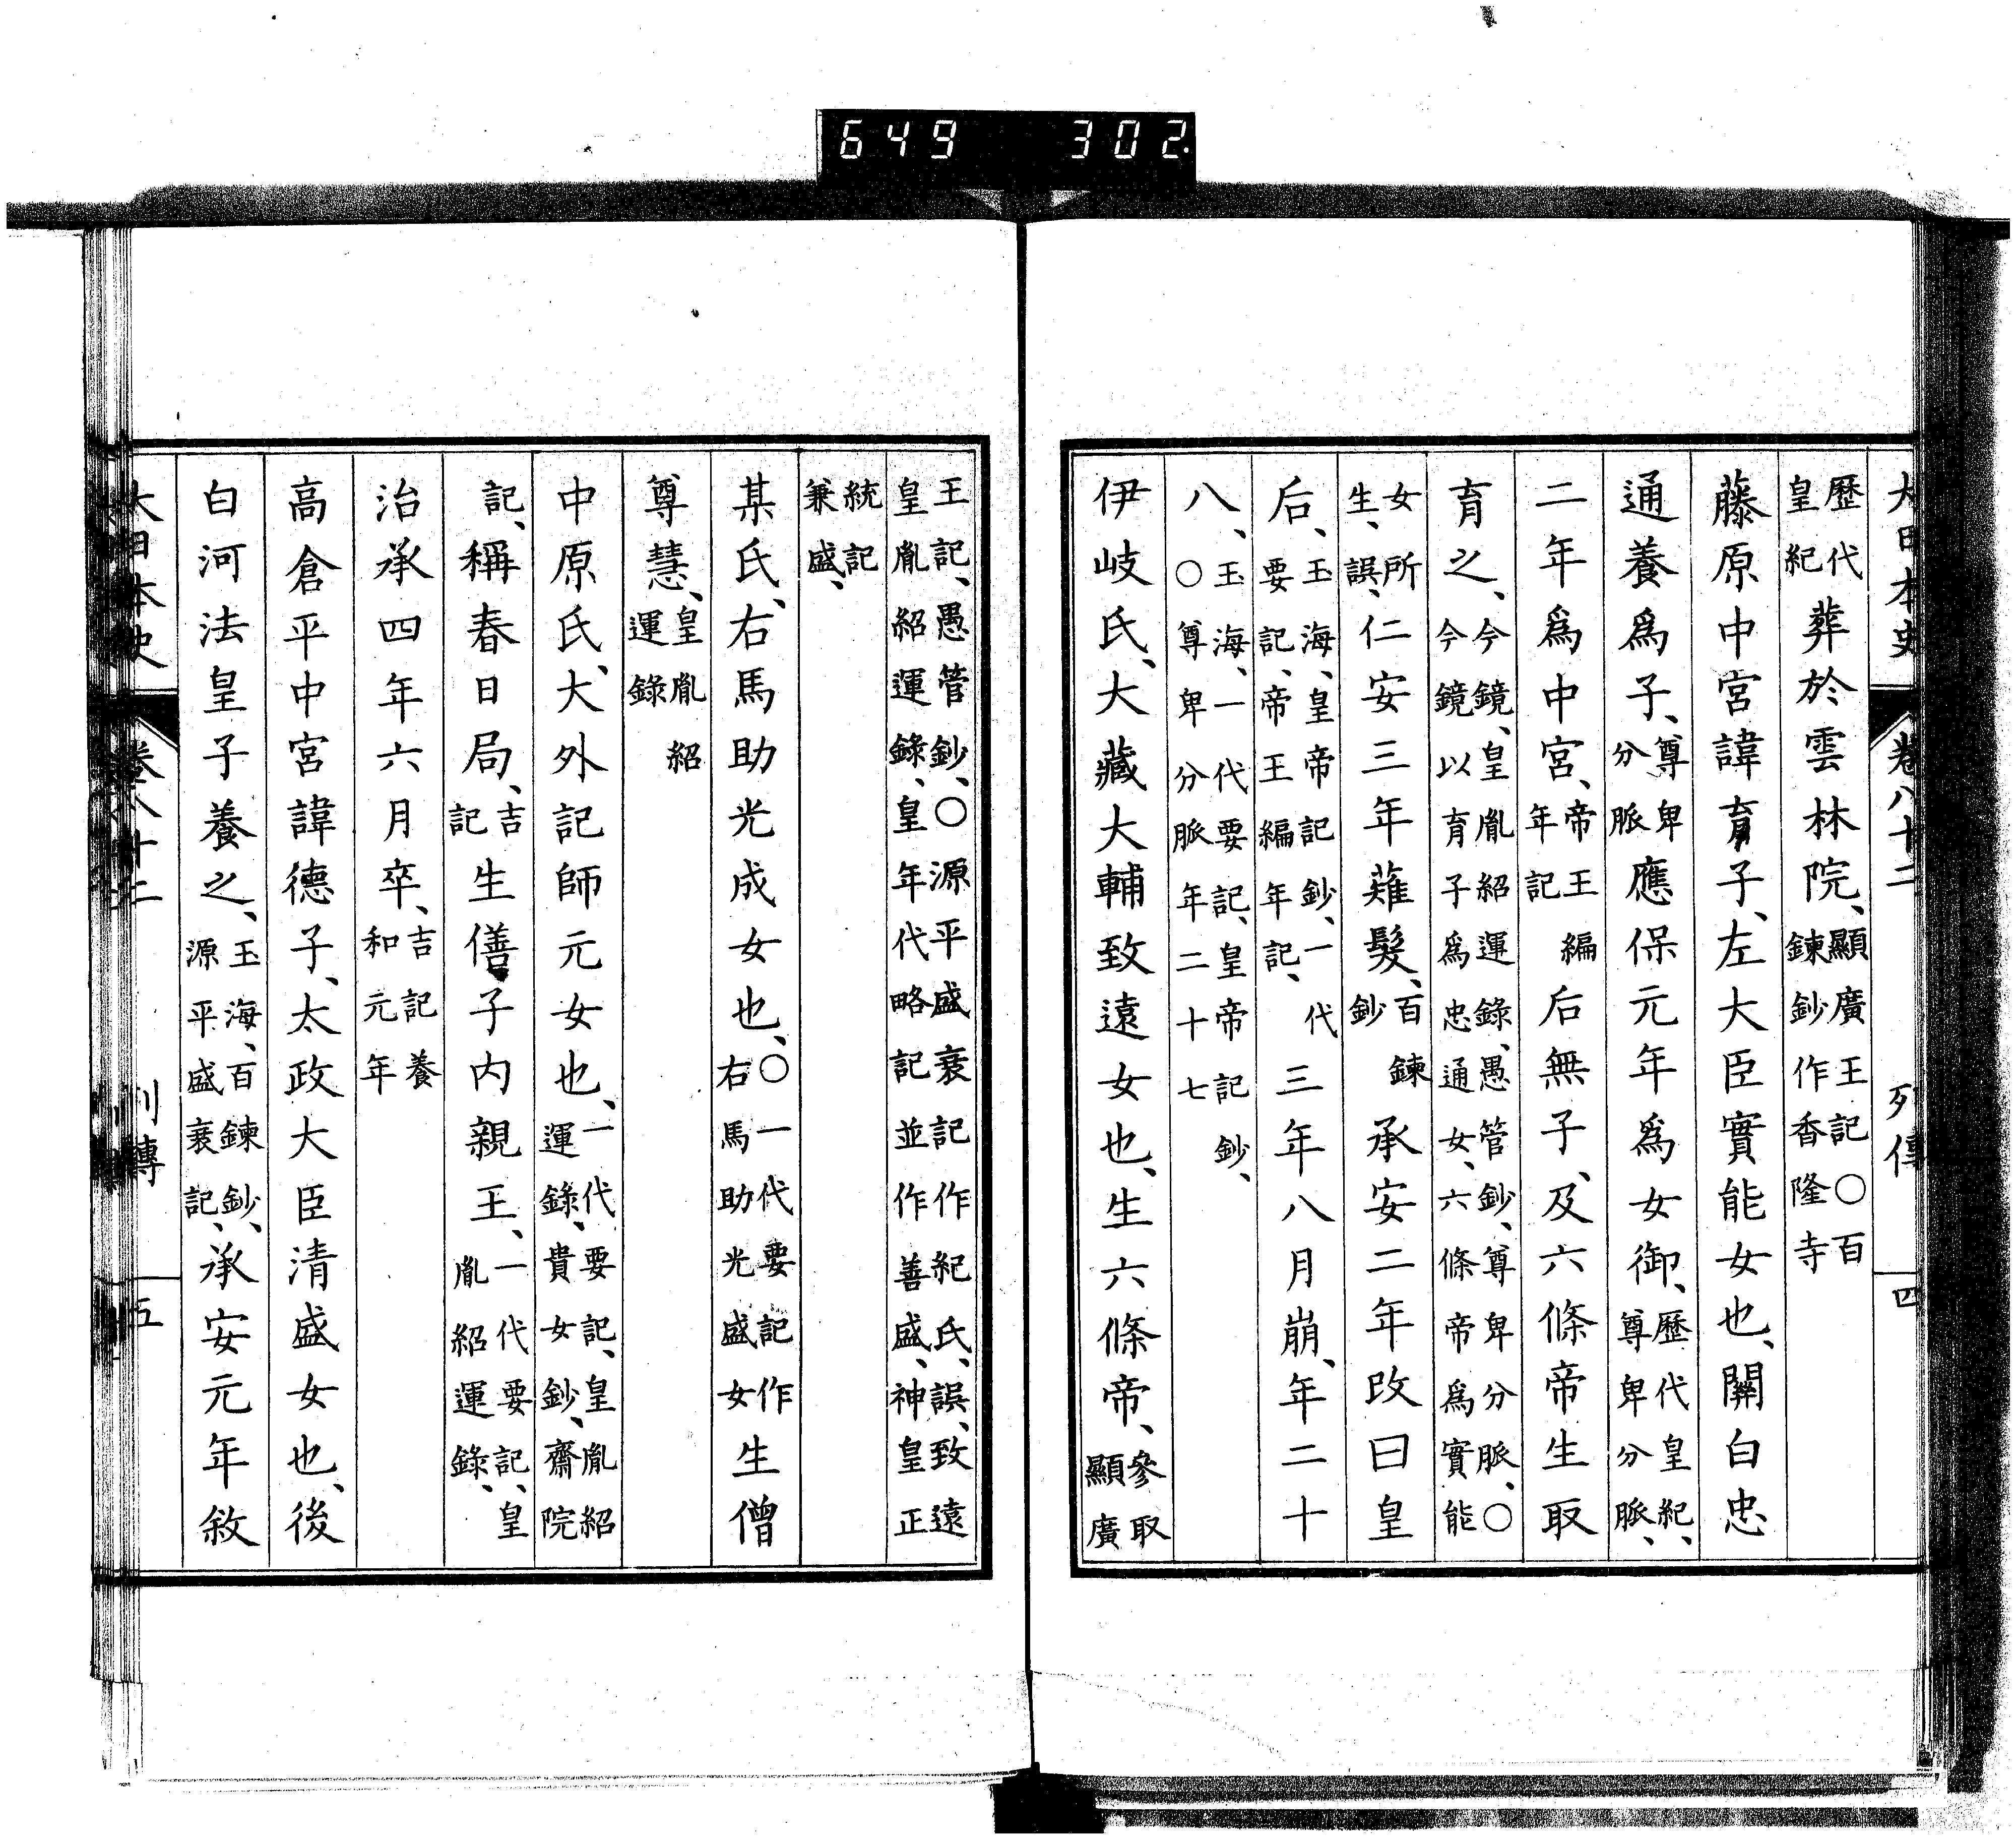 649 302
大日本史 卷八十二 列傳 四
歷代皇紀葬於雲林院、顯廣王記〇百鍊鈔作香隆寺
藤原中宮諱育子、左大臣實能女也、關白忠
通養爲子、尊卑分脈應保元年爲女御、歷代皇紀、尊卑分脈、
二年爲中宮、帝王編年記后無子、及六條帝生取
育之、今鏡、皇胤紹運錄、愚管鈔、尊卑分脈、〇今鏡以育子爲忠通女、六條帝爲實能
女所生、誤、仁安三年薙髮、百鍊鈔承安二年改曰皇
后、玉海、皇帝記鈔、一代要記、帝王編年記、三年八月崩、年二十
八、玉海、一代要記、皇帝記鈔、〇尊卑分脈年二十七
伊岐氏、大藏大輔致遠女也、生六條帝、參取顯廣
王記、愚管鈔、〇源平盛衰記作紀氏、誤、致遠皇胤紹運錄、皇年代略記並作善盛、神皇正
統記兼盛、
某氏、右馬助光成女也、〇一代要記作右馬助光盛女生僧
尊慧、皇胤紹運錄
中原氏、大外記師元女也、一代要記、皇胤紹運錄、貴女鈔、齋院
記、稱春日局、吉記生僐子內親王、一代要記、皇胤紹運錄、
治承四年六月卒、吉記養和元年
高倉平中宮諱德子、太政大臣清盛女也、後
白河法皇子養之、玉海、百鍊鈔、源平盛衰記、承安元年敘
大日本史 卷八十二 列傳 五